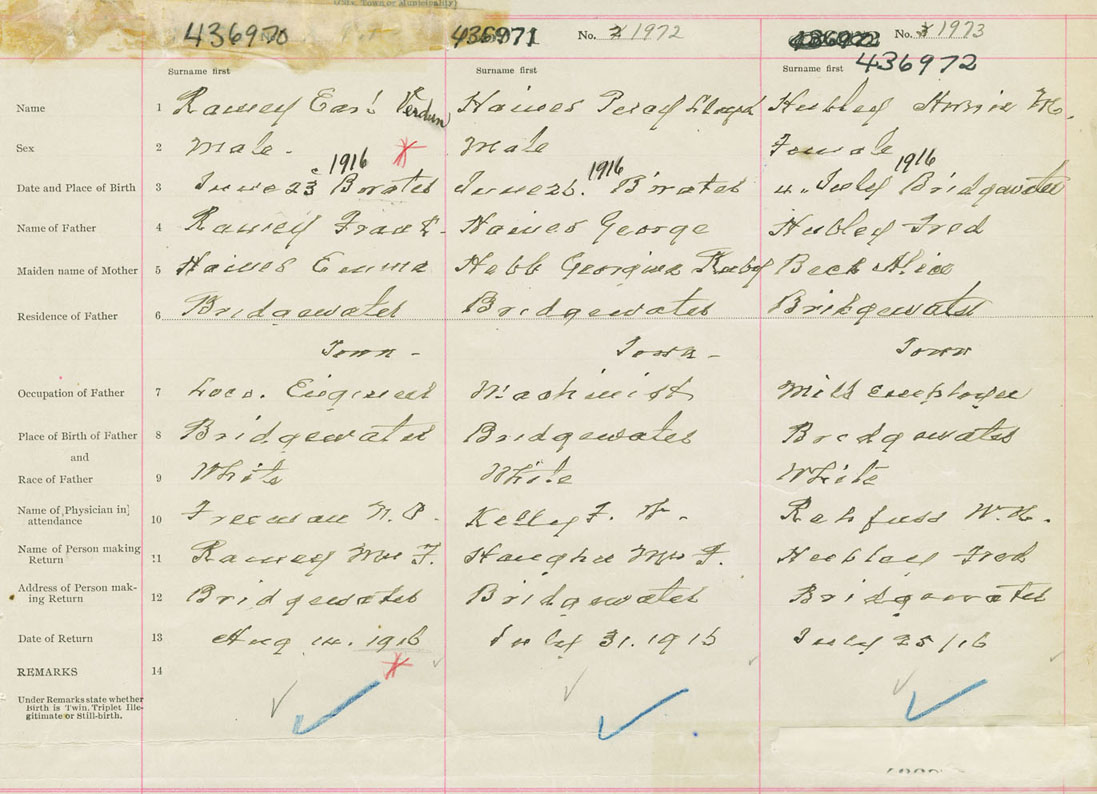 (City, Town or Municipality)
436970 436971 No. 1972 436972 No. 1973
436972
Surname first Surname first Surname first
Name 1 Ramey Earl Verdun Haines Percy Lloyd Hubley
Sex 2 Male. Male Female
1916 1916 1916
Date and Place of Birth 3 June 23 B'water June 26. B'water 4. July Bridgewater
Name of Father 4 Ramey Frank Haines George Hubley Fred
Maiden name of Mother 5 Haines Emma Hebb Georgina Ruby Beck Alice
Residence of Father 6 Bridgewater Bridgewater Bridgewater
Town - Town - Town
Occupation of Father 7 Loco. Engineer Machinist Mill employee
Place of Birth of Father 8 Bridgewater Bridgewater Bridgewater
and
Race of Father 9 White White White
Name of Physician in 10 Freeman N. P. Kelley F. W. Rehfuss W. N.
attendance
Name of Person making 11 Ramey Mrs F. Mrs F. Hubley Fred
Return
Address of Person mak- 12 Bridgewater Bridgewater Bridgewater
ing Return
Date of Return 13 Aug 14. 1916 July 31. 1916 July 25/16
REMARKS 14
Under Remarks state whether
Birth is Twin, Triplet Ille-
gitimate or Still-birth.